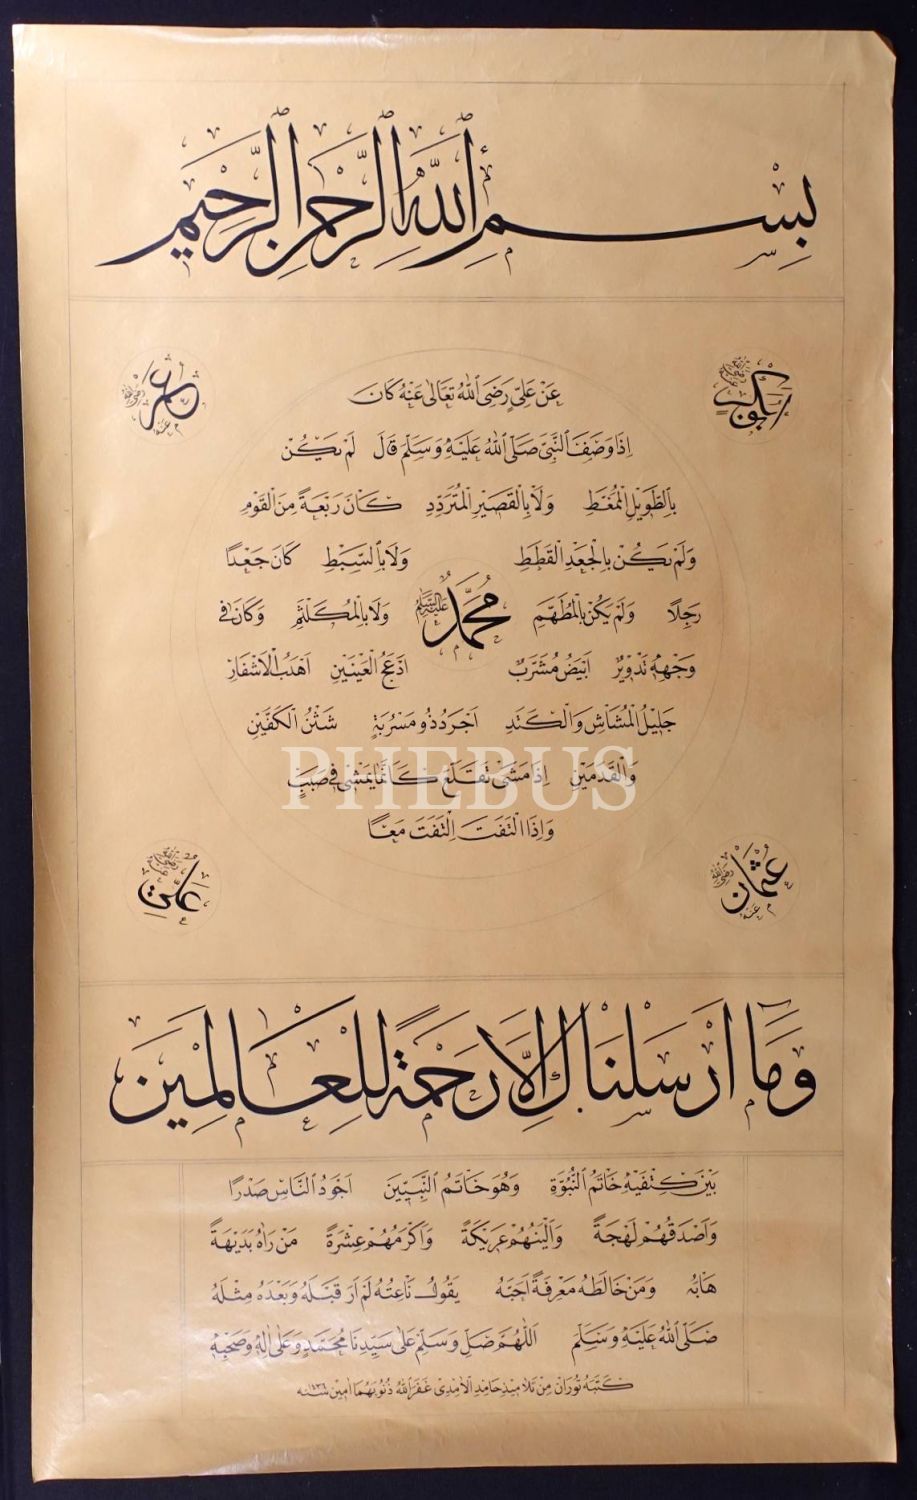 بِسْمِ اللهِ الرَّحْمٰنِ الرَّحِيمِ
ابوبكر رضى الله عنه
عمر رضى الله عنه
عَنْ عَلِيٍّ رَضِىَ اللهُ تَعَالٰى عَنْهُ كَانَ
اِذَا وَصَفَ النَّبِىَّ صَلَّى اللهُ عَلَيْهِ وَسَلَّمَ قَالَ لَمْ يَكُنْ
بِالطَّوِيْلِ الْمُمَّغِطِ وَلَا بِالْقَصِيْرِ الْمُتَرَدِّدِ كَانَ رَبْعَةً مِنَ الْقَوْمِ
وَلَمْ يَكُنْ بِالْجَعْدِ الْقَطَطِ وَلَا بِالسَّبْطِ كَانَ جَعْدًا
رَجِلًا وَلَمْ يَكُنْ بِالْمُطَهَّمِ مُحَمَّدٌ عليه السلام وَلَا بِالْمُكَلْثَمِ وَكَانَ فِى
وَجْهِهِ تَدْوِيْرٌ اَبْيَضُ مُشْرَبٌ اَدْعَجُ الْعَيْنَيْنِ اَهْدَبُ الْاَشْفَارِ
جَلِيْلُ الْمُشَاشِ وَالْكَتَدِ اَجْرَدُ ذُو مَسْرُبَةٍ شَثْنُ الْكَفَّيْنِ
وَالْقَدَمَيْنِ اِذَا مَشٰى تَقَلَّعَ كَاَنَّمَا يَمْشِى فِى صَبَبٍ
PHEBUS
وَاِذَا الْتَفَتَ اِلْتَفَتَ مَعًا
عثمان رضى الله عنه
على رضى الله عنه
وَمَا اَرْسَلْنَاكَ اِلَّا رَحْمَةً لِلْعَالَمِيْنَ
بَيْنَ كَتِفَيْهِ خَاتَمُ النُّبُوَّةِ وَهُوَ خَاتَمُ النَّبِيِّيْنَ اَجْوَدُ النَّاسِ صَدْرًا
وَاَصْدَقُهُمْ لَهْجَةً وَاَلْيَنُهُمْ عَرِيْكَةً وَاَكْرَمُهُمْ عِشْرَةً مَنْ رَاٰهُ بَدِيْهَةً
هَابَهُ وَمَنْ خَالَطَهُ مَعْرِفَةً اَحَبَّهُ يَقُولُ نَاعِتُهُ لَمْ اَرَ قَبْلَهُ وَبَعْدَهُ مِثْلَهُ
صَلَّى اللهُ عَلَيْهِ وَسَلَّمَ اَللّٰهُمَّ صَلِّ وَسَلِّمْ عَلٰى سَيِّدِنَا مُحَمَّدٍ وَعَلٰى اٰلِهِ وَصَحْبِهِ
كَتَبَهُ تُورَان مِنْ تَلَامِيذِ حَامِد الْاٰمِدِى غَفَرَ اللهُ ذُنُوبَهُمَا اٰمِين سَنَه